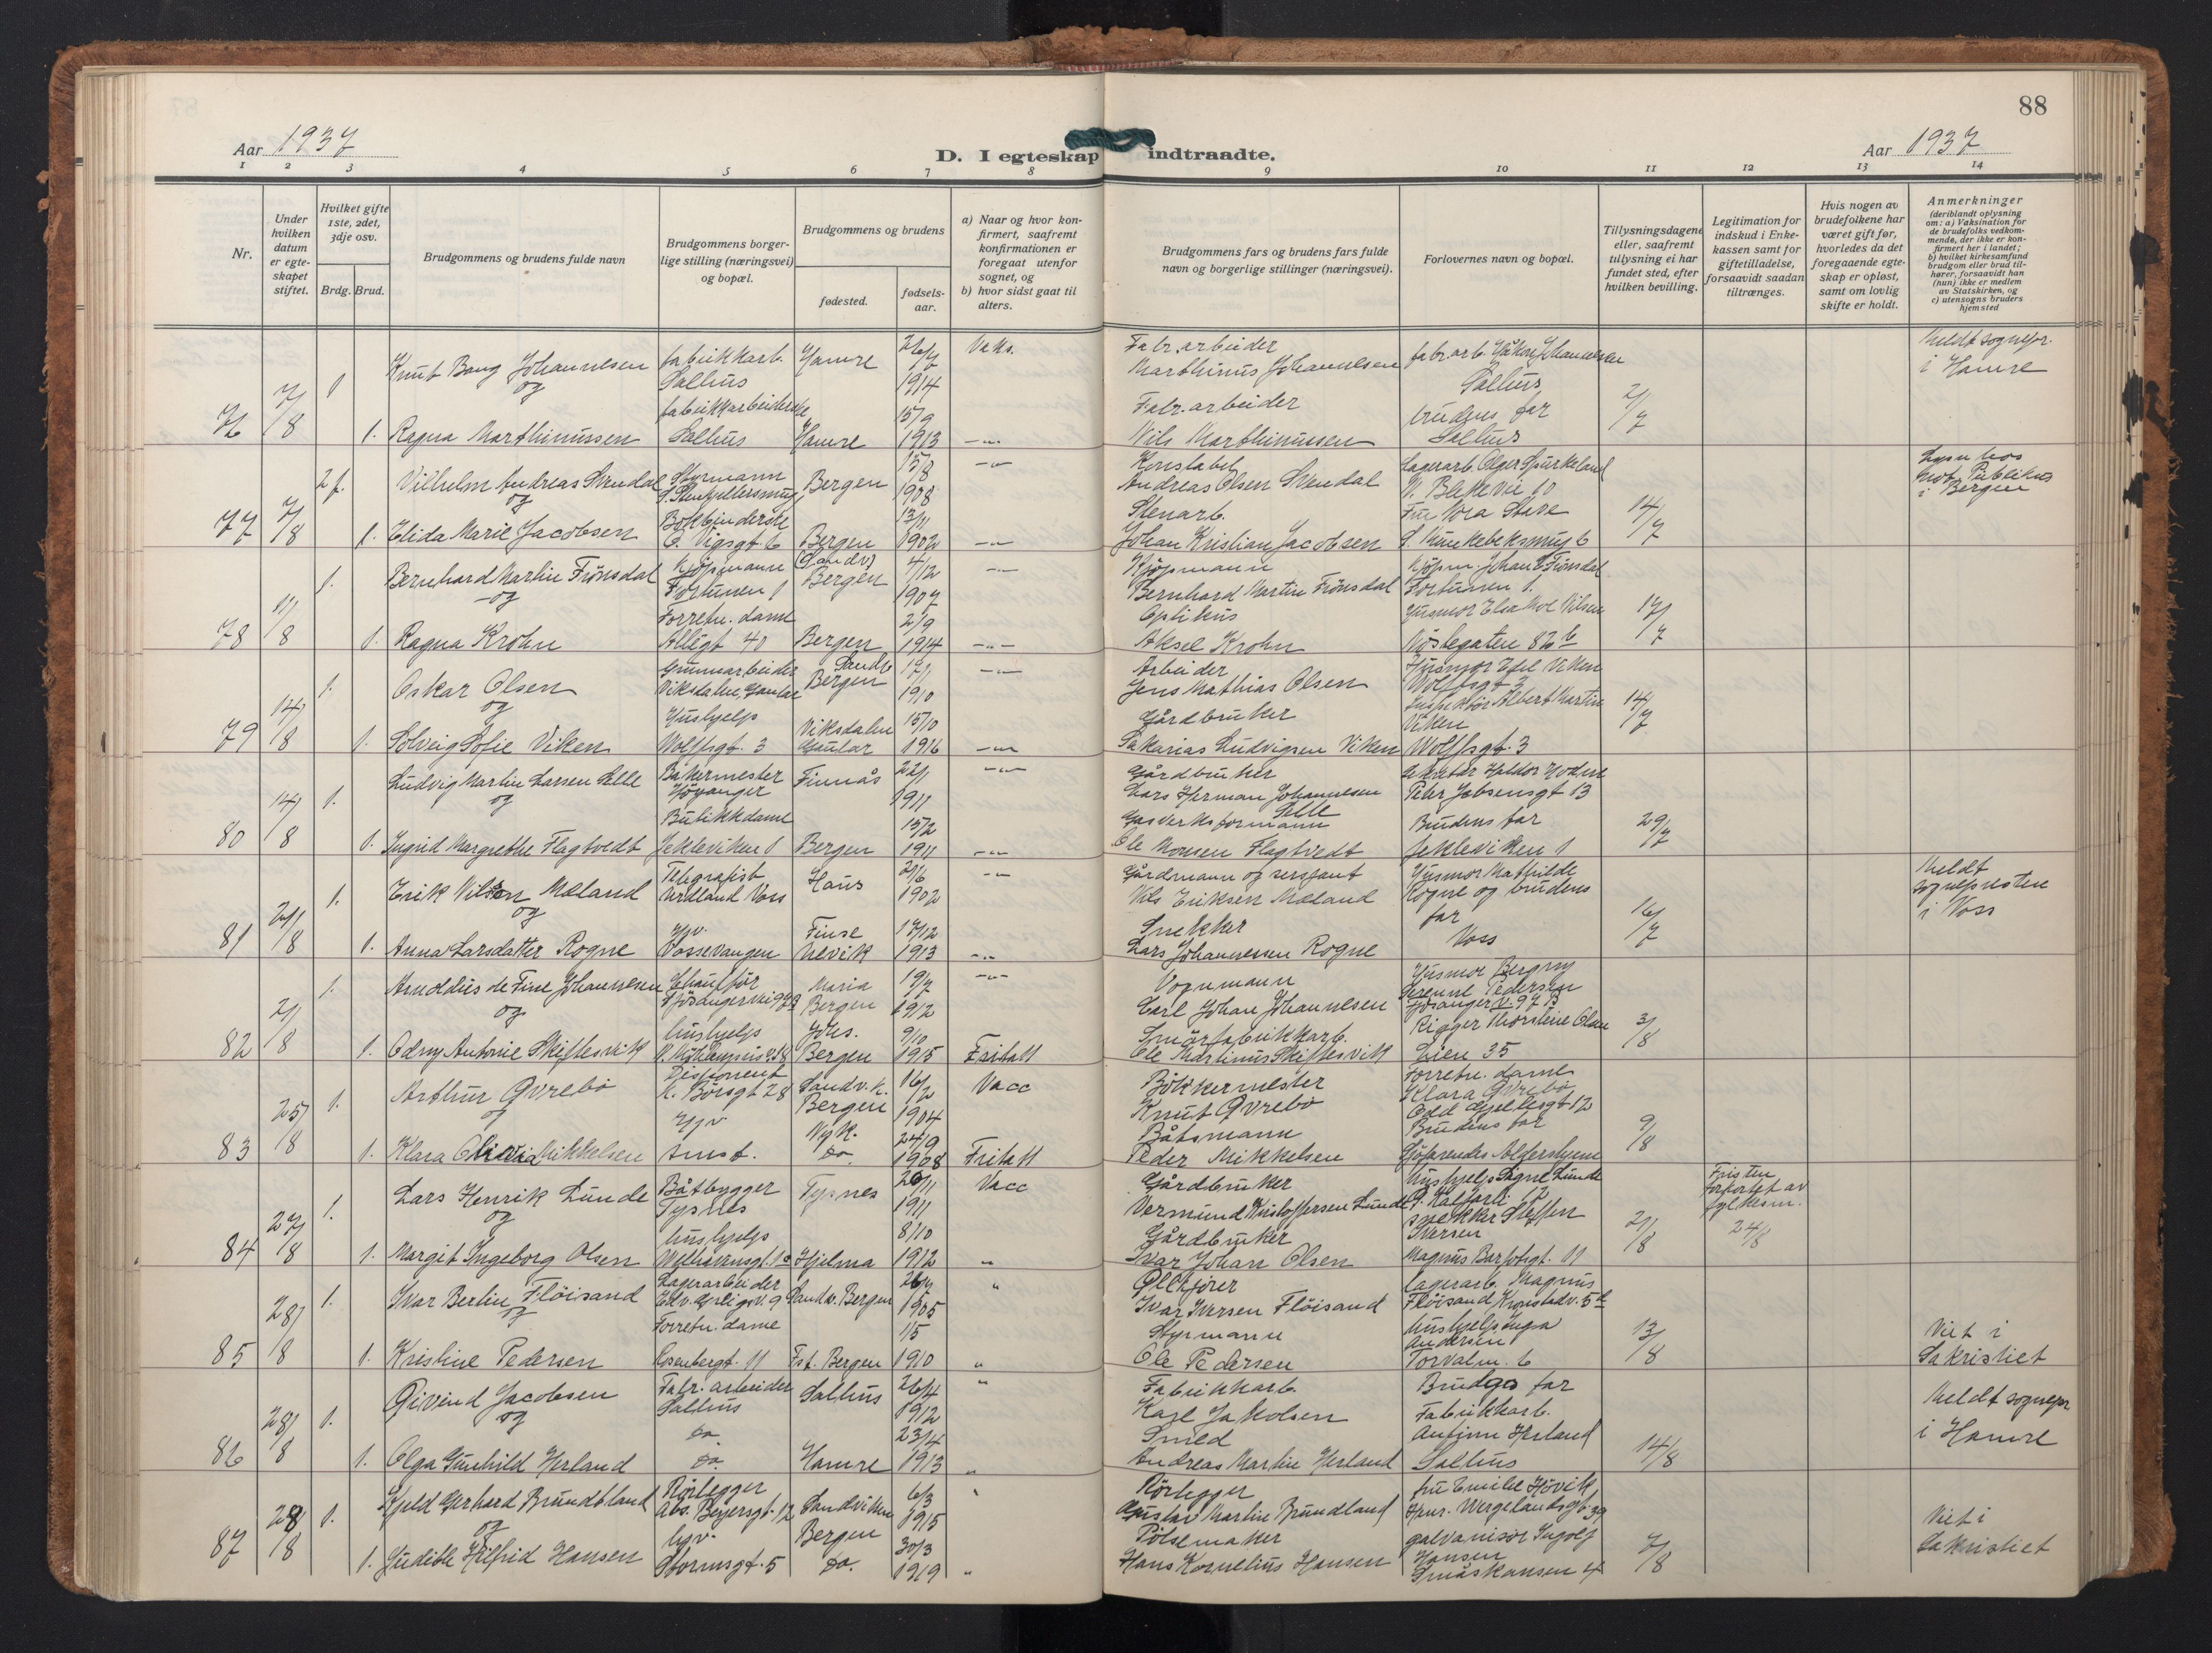 88
Aar 1937
D. I egteskap indtraadte.
Aar 1937
1 2 3 4 5 6 7 8 9 10 11 12 13 14
Nr.
Under hvilken datum er egte-skapet stiftet.
Hvilket gifte 1ste, 2det, 3dje osv.
Brdg. Brud.
Brudgommens og brudens fulde navn
Brudgommens borger-lige stilling (næringsvei) og bopæl.
Brudgommens og brudens
fødested.
fødsels-aar.
a) Naar og hvor kon-firmert, saafremt konfirmationen er foregaat utenfor sognet, og
b) hvor sidst gaat til alters.
Brudgommens fars og brudens fars fulde navn og borgerlige stillinger (næringsvei).
Forlovernes navn og bopæl.
Tillysningsdagene eller, saafremt tillysning ei har fundet sted, efter hvilken bevilling.
Legitimation for indskud i Enke-kassen samt for giftetilladelse, forsaavidt saadan tiltrænges.
Hvis nogen av brudefolkene har været gift før, hvorledes da det foregaaende egte-skap er opløst, samt om lovlig skifte er holdt.
Anmerkninger
(deriblandt oplysning om: a) Vaksination for de brudefolks vedkom-mende, der ikke er kon-firmert her i landet; b) hvilket kirkesamfund brudgom eller brud til-hører, forsaavidt han (hun) ikke er medlem av Statskirken, og c) utensogns bruders hjemsted
76 7/8 1 Knut Bang Johannesen fabrikkarb. Salhus Hamre 26/7 1914 Vaks. Fabr.arbeider Marthinus Johannesen fabr.arb. Håkon Johannesen Salhus 2/7 Meldt sognepr. i Hamre
og
1. Ragna Marthinussen fabrikkarbeiderske Salhus Hamre 15/9 1913 Fabr.arbeider Nils Marthinussen brudens far Salhus
77 7/8 2 f. Vilhelm Andreas Svendal Styrmann Bergen 15/8 1908 Konstabel Andreas Olsen Svendal Lagerarb. Olger Spurkeland N. Blekevei 10 14/7 Lyst hos Not. Publikus i Bergen
og
1. Elida Marie Jacobsen Bokbinderske E. Vigsgt. 6 Bergen 13/11 1902 Stenarb. Johan Kristian Jacobsen Fru Nora Stave
78 11/8 1. Bernhard Martin Frönsdal Kjöpmann Fortunen 1 (Sandv) Bergen 4/12 1907 Kjöpmann Bernhard Martin Frönsdal Kjöpm. Johan Frönsdal Fortunen 1. 17/7
og
1. Ragna Krohn Forretn. dame Allégt 40 Bergen 2/9 1914 Optikus Aksel Krohn Husmor Else Moe Nilsen Nöstegaten 82 b
79 14/8 1. Oskar Olsen Grunnarbeider Viksdalen, Gaular Sandv Bergen 17/1 1910 Arbeider Jens Mathias Olsen Husmor Edel Viken Wolffsgt 3 14/7
og
1. Solveig Sofie Viken Hushjelp Wolffsgt. 3 Viksdalen Gaular 15/10 1916 Gårdbruker Sakarias Ludvigsen Viken Inspektör Albert Martin Viken Wolffsgt. 3
80 14/8 1. Ludvig Martin Larsen Selle Bakermester Höyanger Finnås 22/1 1911 Gårdbruker Lars Herman Johannesen Selle Peter Jebsensgt 13 29/7
og
1. Ingrid Margrethe Flagtvedt Butikkdame Jekteviken 1 Bergen 15/2 1911 Gasverksformann Ole Monsen Flagtvedt Brudens far Jekteviken 1
81 21/8 1. Erik Nilsen Mæland Telegrafist Voss Haus 2/6 1902 Gårdmann og sersjant Nils Eriksen Mæland Husmor Mathilde Rogne og brudens far Voss 16/7 Meldt sognepresten i Voss
og
1. Anna Larsdatter Rogne Hjv. Vossevangen Finse Ulvik 17/12 1913 Snekker Lars Johannesen Rogne
82 21/8 1. Arnoldus de Fine Johannesen Chaufför Fjösangervei 97B Maria Bergen 19/7 1912 Vognmann Carl Johan Johannesen Husmor Bergny Pedersen Fjösangerv. 97 B 3/8
og
1. Odny Antonie Skiftesvik hushjelp Johs. Bergen 9/10 1915 Fritatt Smörfabrikkarb. Ole Martinus Skiftesvik Rigger Thorstein Olsen Lien 35
83 25/8 1. Arthur Øvrebö Disponent K. Börsgt 28 Sandv.k. Bergen 16/2 1904 Vacc Bökkermester Knut Øvrebö Forretn. dame Klara Øvrebö Odd Gjellesgt 12 9/8
og
1. Klara Olivia Mikkelsen Hjv Nyk. do. 24/9 1908 Fritatt Båtsmann Peder Mikkelsen Brudens far Sjöfarendes Aldershjem
84 27/8 1. Lars Henrik Lunde Båtbygger Tysnes Tysnes 20/11 1911 Vacc Gårdbruker Vermund Kristoffersen Lunde Hushjelp Signe Lunde 21/8 Fristen forkortet av fylkesm. 24/8
og
1. Margit Ingeborg Olsen hushjelp Hjelma 8/10 1912 " Gårdbruker Ivar Johan Olsen snekker Steffen Iversen Magnus Barfotsgt. 11
85 28/8 1. Ivar Berlin Flöisand Lagerarbeider Edv. Griegsv. 9 Sandv. Bergen 26/7 1905 " Ølkjörer Ivar Iversen Flöisand Lagerarb. Magnus Flöisand Kronstadv. 5 b 13/8 Viet i Sakristiet
og
1. Kristine Pedersen Forretn. dame Rosenbergt. 11 Fst. Bergen 1/5 1910 " Styrmann Ole Pedersen hushjelp Inga Andersen Torvalm. 6
86 28/8 1. Øivind Jacobsen Fabr. arbeider Salhus Salhus 26/4 1912 " Fabrikkarb. Karl Jakobsen Brudgs far Fabrikkarb. 14/8 Meldt sognepr i Hamre
og
1. Olga Gunhild Herland do. do. Hamre 23/4 1913 " Smed Andreas Martin Herland Anfinn Herland Salhus
87 28/8 1. Kjeld Gerhard Brundtland Rörlegger Abs. Beyersgt. 12 Sandviken Bergen 6/3 1915 " Rörlegger Gustav Martin Brundland fru Emilie Hövik Henr. Wergelandsgt. 39 7/8 Viet i Sakristiet
og
1. Judith Hilfrid Hansen hjv. Stormsgt. 5 do. 30/3 1919 " Pölsemaker Hans Kornelius Hansen galvanisör Ingolf Hansen Småskansen 4